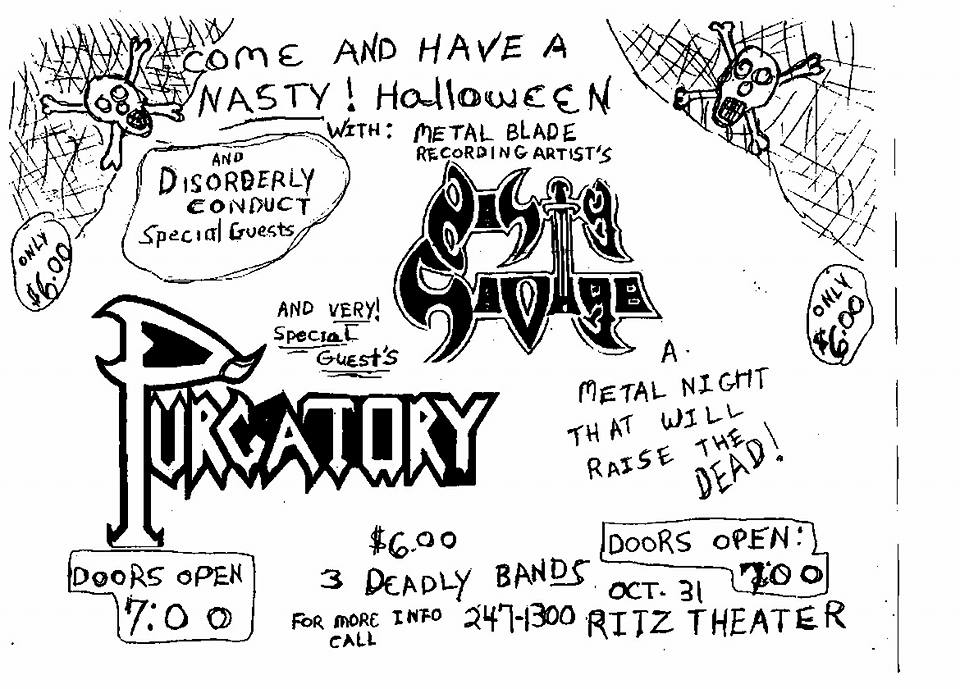 COME AND HAVE A
NASTY! HalloWEEN
WITH: METAL BLADE
RECORDING ARTIST'S
NASTY
SAVAGE
AND
DISORDERLY
CONDUCT
Special Guests
ONLY
$6.00
ONLY
$6.00
AND VERY!
Special
GUEST'S
PURGATORY
A
METAL NIGHT
THAT WILL
RAISE THE
DEAD!
DOORS OPEN
7:00
$6.00
3 DEADLY BANDS
FOR MORE INFO 247-1300
CALL
DOORS OPEN:
7:00
OCT. 31
RITZ THEATER